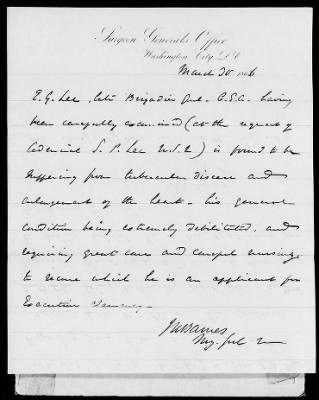 Surgeon General's Office
Washington City, D.C.
March 30. 1866
E. G. Lee, late Brigadier Genl. C.S.A. having
been carefully examined (at the request of
Admiral S. P. Lee U.S.N.) is found to be
suffering from tubercular disease and
enlargement of the heart - his general
condition being extremely debilitated, and
requiring great care and careful nursing
to secure which he is an applicant for
Executive Clemency.
JK Barnes
Surg. Genl